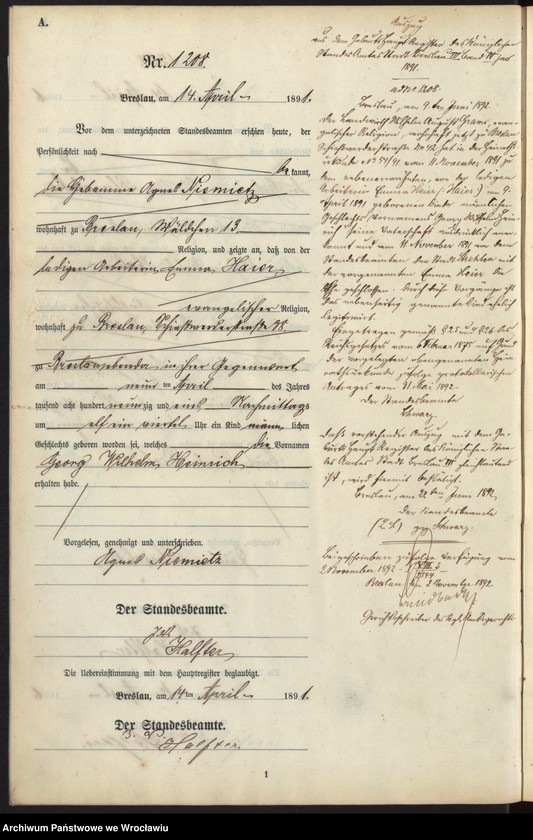 A.
Nr. 1208.
Breslau, am 14. April 1891.
Vor dem unterzeichneten Standesbeamten erschien heute, der
Persönlichkeit nach
bekannt,
die Hebamme Agnes Niemietz
wohnhaft zu Breslau, Wäldchen 13
Religion, und zeigte an, daß von der
ledigen Arbeiterin Emma Haier,
evangelischer Religion,
wohnhaft zu Breslau, Schießwerderstraße 38.
zu Breslau ebenda, in ihrer Gegenwart
am neun ten April des Jahres
tausend acht hundert neunzig und eins Nachmittags
um elf ein viertel Uhr ein Kind männlichen
Geschlechts geboren worden sei, welches die Vornamen
Georg Wilhelm Heinrich
erhalten habe.
Vorgelesen, genehmigt und unterschrieben.
Agnes Niemietz
Der Standesbeamte.
Halfter
Die Uebereinstimmung mit dem Hauptregister beglaubigt.
Breslau, am 14ten April 1891.
Der Standesbeamte.
Halfter.
1
Auszug
aus dem Geburts Haupt Register des Königlichen
Standes Amtes Stadt Breslau III Band IV pro
1891.
ad No 1208.
Breslau, am 9. ten Juni 1892.
Der Landwirth Wilhelm August
gelischer Religion, wohnhaft jetzt zu Breslau
Schießwerderstraße No 42, hat in der
No 54/91 vom 11 November 1891 zu
dem nebenvermerkten, von der ledigen
Arbeiterin Emma Haier (Heier) am 9.
April 1891 geborenen Kinde männlichen
Geschlechts, Vornamens Georg Wilhelm Hein-
rich seine Vaterschaft ausdrücklich aner-
kannt und am 11 November 1891 vor dem
Standesbeamten der Stadt Strehlen mit
der vorgenannten Emma Heier die
Ehe geschlossen. Durch diese Vorgänge ist
das nebenseitig genannte Kind ehelich
legitimirt.
Eingetragen gemäß § 25 und § 26 des
Reichsgesetzes vom 6 Februar 1875 auf Grund
der vorgelegten obengenannten
zufolge protokollarischen
Antrages vom 31 Mai 1892.
Der Standesbeamte
Schwarz.
Daß vorstehender Auszug mit dem Ge-
burts Haupt Register des Königlichen Stan-
des Amtes Stadt Breslau III gleichlautend
ist, wird hiermit bestätigt.
Breslau, am 22 ten Juni 1892.
Der Standesbeamte
(L.S.) gez. Schwarz.
Beigeschrieben zufolge Verfügung vom
2 November 1892
Breslau den 2 November 1892
Gerichtsschreiber des Kgl. Amtsgerichts
Archiwum Państwowe we Wrocławiu